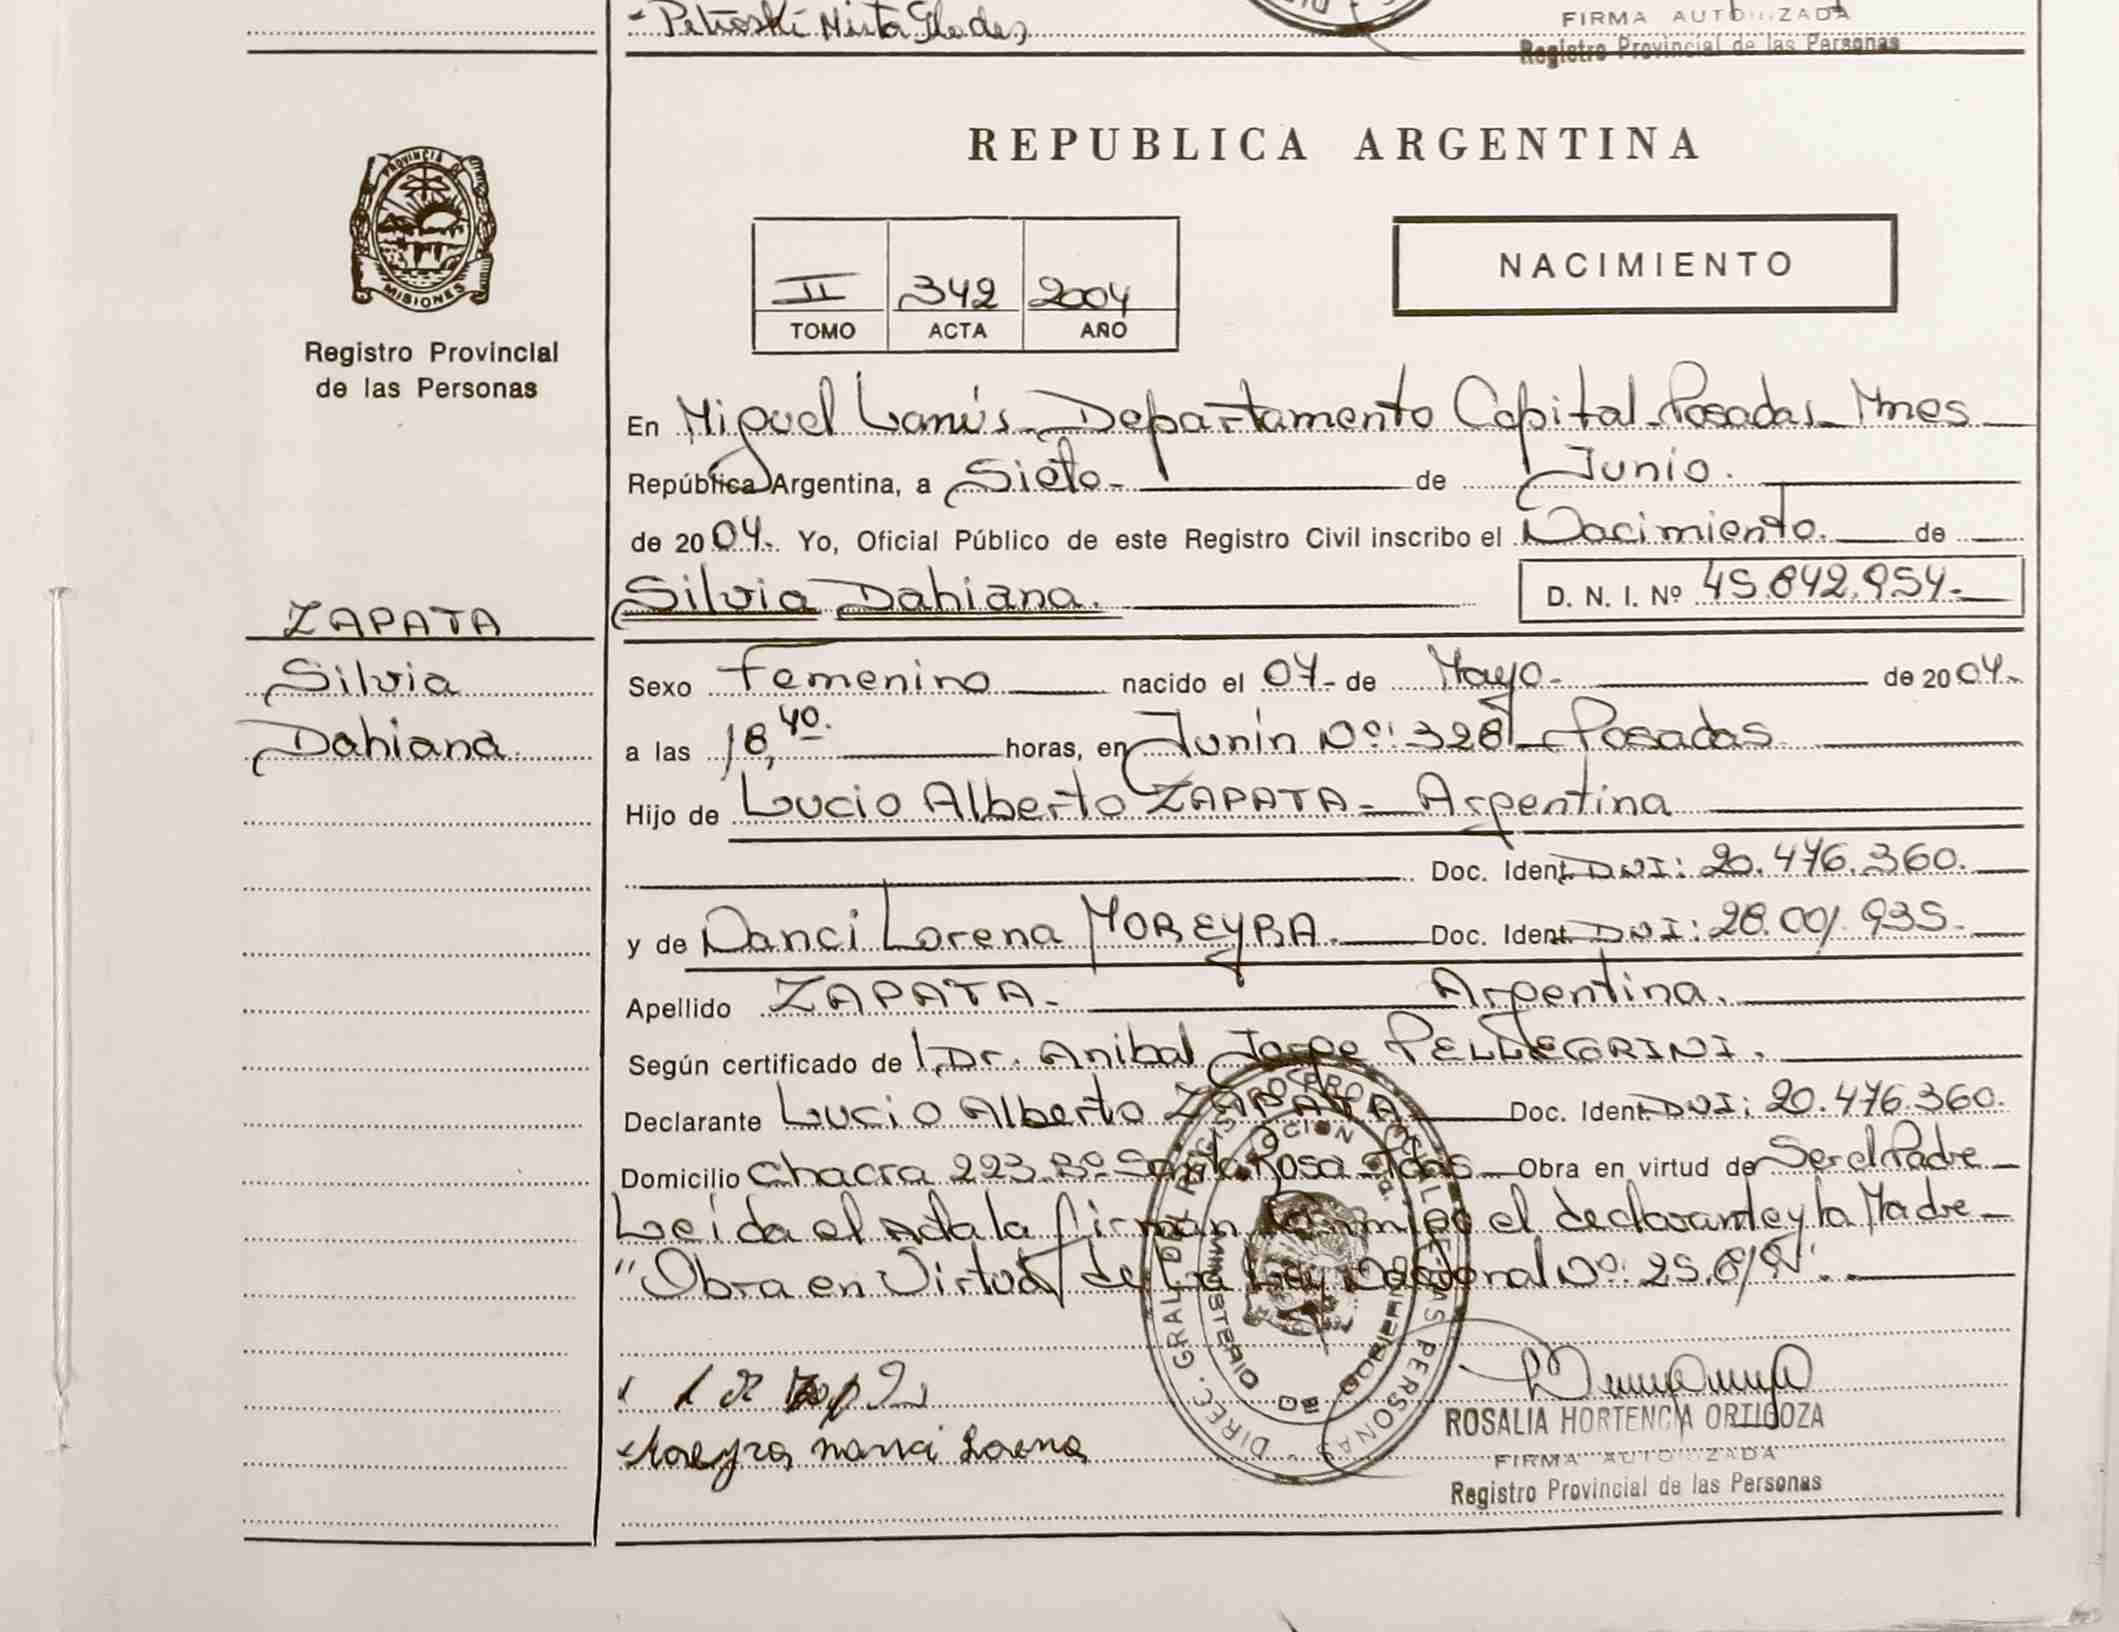 Petroski Mirta Glades
FIRMA AUTORIZADA
Registro Provincial de las Personas
PROVINCIA DE
MISIONES
Registro Provincial
de las Personas
REPUBLICA ARGENTINA
NACIMIENTO
II 342 2004
TOMO ACTA AÑO
En Miguel Lanús - Departamento Capital - Posadas - Mnes
República Argentina, a Siete - de Junio.
de 2004. Yo, Oficial Público de este Registro Civil inscribo el Nacimiento. de
Silvia Dahiana. D. N. I. Nº 45.842.954-
ZAPATA
Silvia
Dahiana.
Sexo Femenino nacido el 07- de Mayo- de 2004.
a las 18,40. horas, en Junín Nº: 328 - Posadas
Hijo de Lucio Alberto ZAPATA - Argentina
Doc. Ident. DNI: 20.476.360.
y de Nanci Lorena MOREYRA. Doc. Ident. DNI: 28.001.935-
Apellido ZAPATA - Argentina.
Según certificado de l Dr. Anibal Jorge PELLEGRINI.
Declarante Lucio Alberto ZAPATA Doc. Ident. DNI: 20.476.360.
Domicilio Chacra 223 Bº Santa Rosa - Pdas - Obra en virtud de Ser el Padre -
Leída el Acta la firman conmigo el declarante y la Madre -
"Obra en Virtud de La Ley Nacional Nº: 25.819".
DIREC. GRAL. DEL REGISTRO PROV. DE LAS PERSONAS
MINISTERIO DE GOBIERNO
Moreyra nanci Lorena
ROSALIA HORTENCIA ORTIGOZA
FIRMA AUTORIZADA
Registro Provincial de las Personas